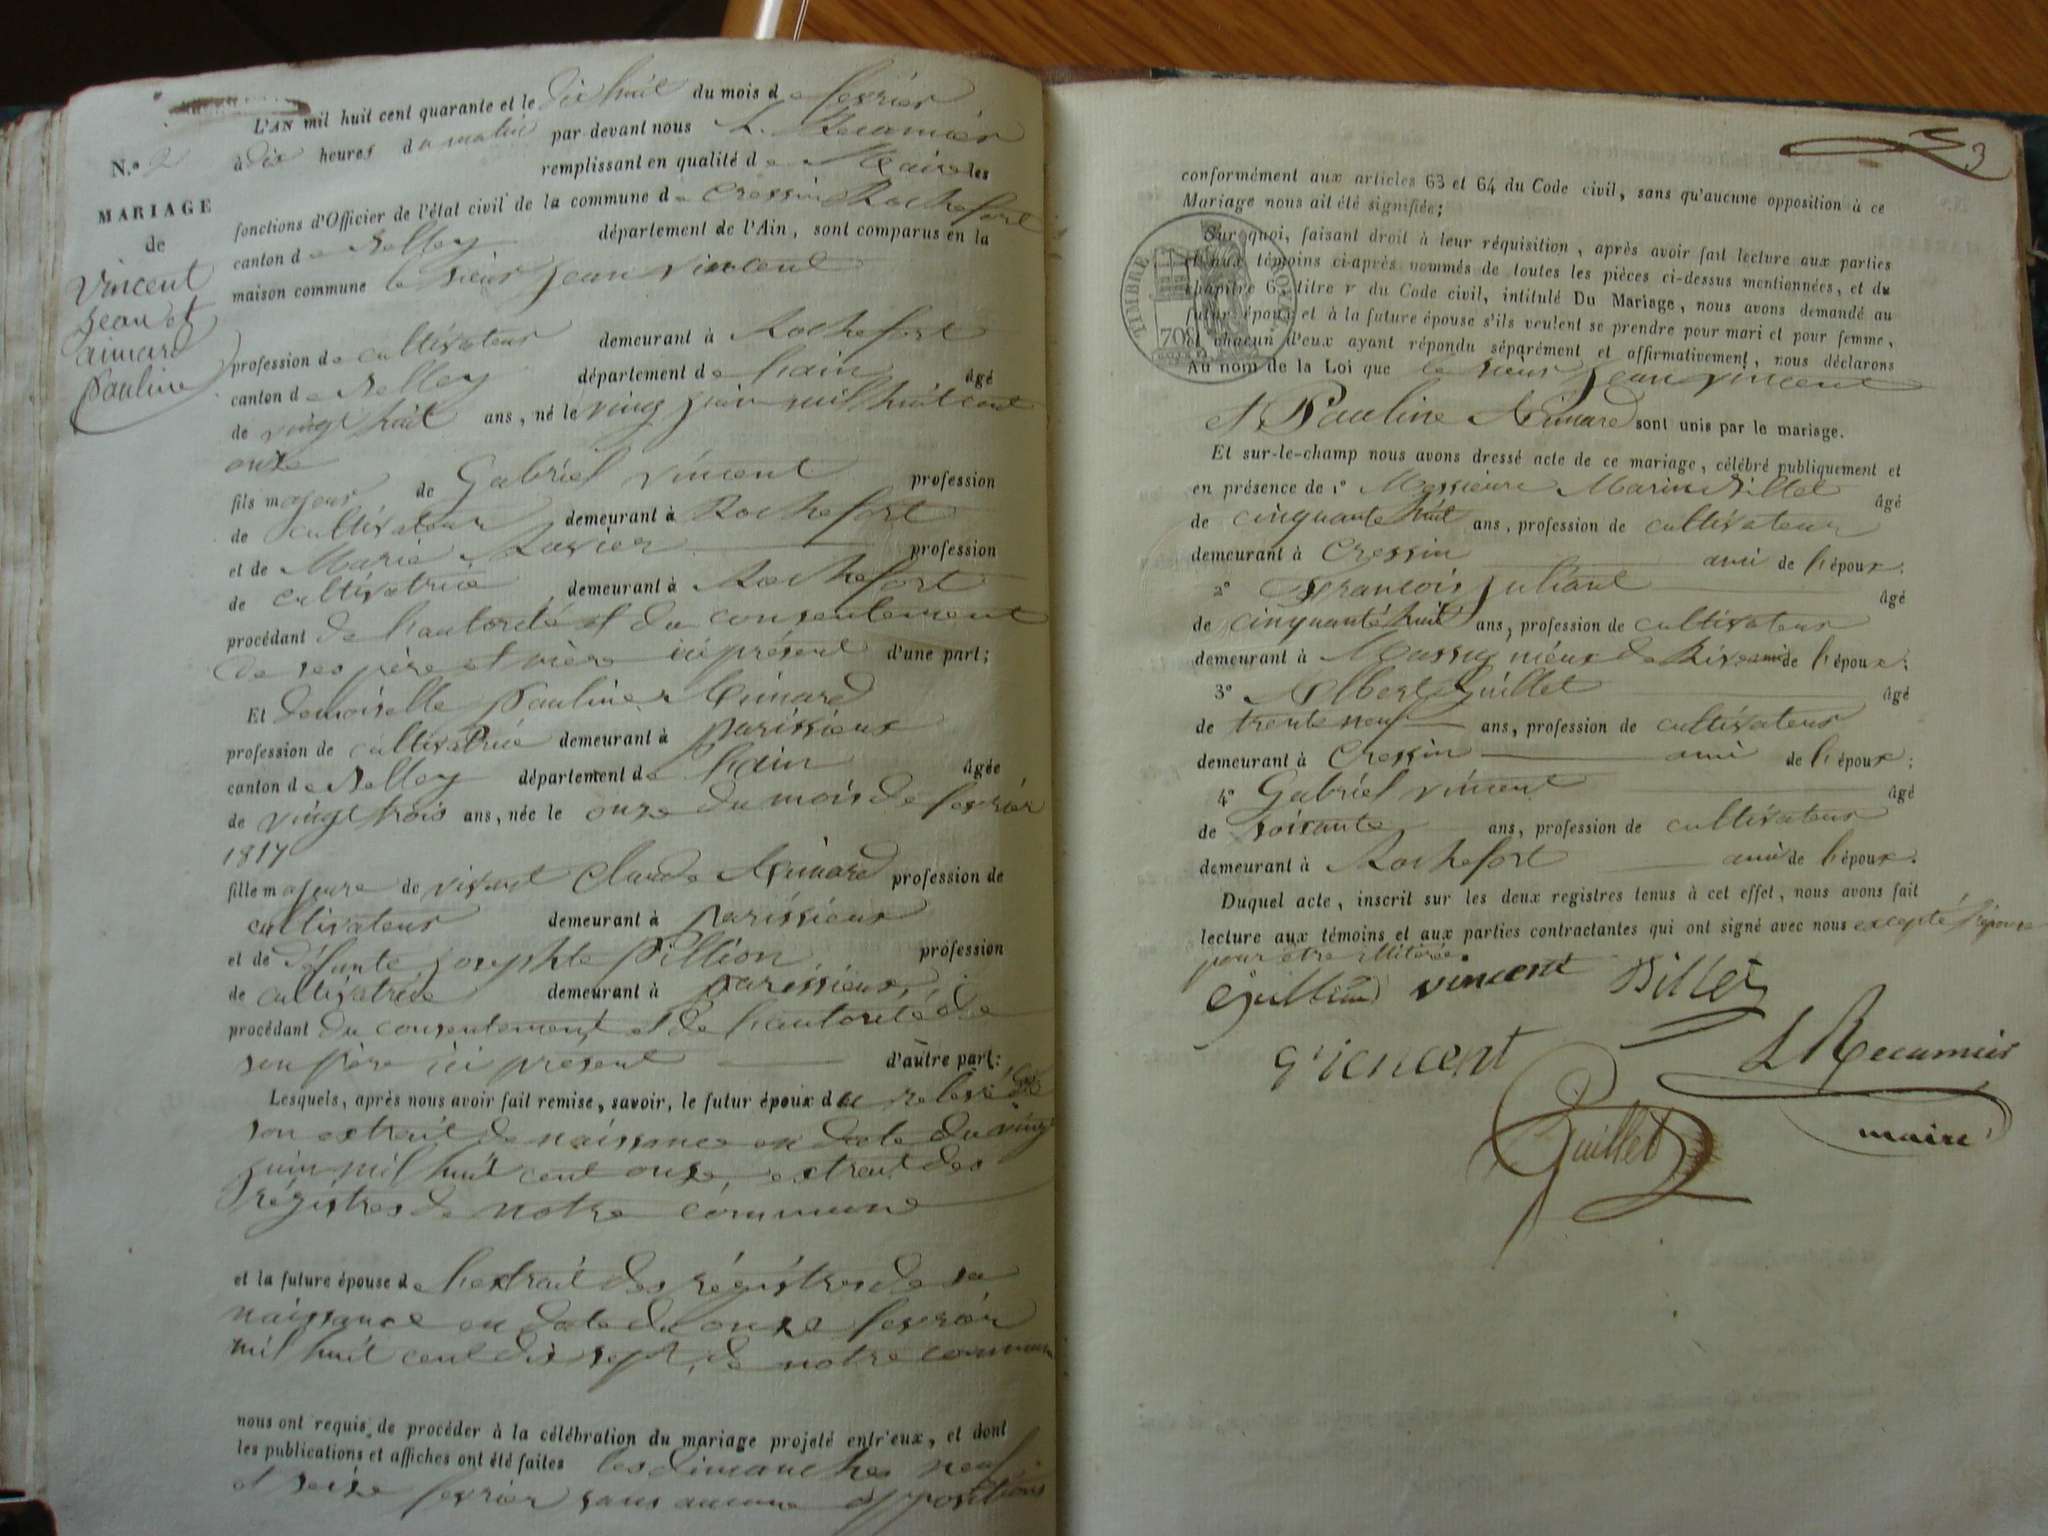 N.o 2
MARIAGE
de
Vincent
Jean et
aimard
Pauline
L'AN mil huit cent quarante et le dix huit du mois de fevrier
à dix heures du matin par-devant nous L. Recamier
remplissant en qualité de Maire les
fonctions d'Officier de l'état civil de la commune de Cressin Rochefort
canton de Belley département de l'Ain, sont comparus en la
maison commune le sieur Jean Vincent
profession de cultivateur demeurant à Rochefort
canton de Belley département de lain âgé
de vingt huit ans, né le ving juin mil huit cent
onze
fils majeur de Gabriel Vincent profession
de cultivateur demeurant à Rochefort
et de Marie Ravier profession
de cultivatrice demeurant à Rochefort
procédant de lautorité et du consentement
de ses père et mère ici présent d'une part;
Et demoiselle Pauline Aimard
profession de cultivatrice demeurant à parissieux
canton de Belley département de lain âgée
de vingt trois ans, née le onze du mois de fevrier
1817
fille majeure de vivant Claude Aimard profession de
cultivateur demeurant à parissieux
et de défunte Josephte Pillion profession
de cultivatrice demeurant à parissieux
procédant du consentement et de lautorité de
son père ici present d'autre part:
Lesquels, après nous avoir fait remise, savoir, le futur époux du relevé de
son extrait de naissance en date du ving
juin mil huit cent onze, extrait des
régistres de notre commune
et la future épouse de lextrait des régistres de sa
naissance en date du onze fevrier
mil huit cent dix sept, de notre commune
nous ont requis de procéder à la célébration du mariage projeté entr'eux, et dont
les publications et affiches ont été faites les dimanches neuf
et seize fevrier sans aucune oppositions
3
conformément aux articles 63 et 64 du Code civil, sans qu'aucune opposition à ce
Mariage nous ait été signifiée;
Sur quoi, faisant droit à leur réquisition, après avoir fait lecture aux parties
et aux témoins ci-après nommés de toutes les pièces ci-dessus mentionnées, et du
chapitre 6, titre v du Code civil, intitulé Du Mariage, nous avons demandé au
futur époux et à la future épouse s'ils veulent se prendre pour mari et pour femme,
et chacun d'eux ayant répondu séparément et affirmativement, nous déclarons
Au nom de la Loi que le sieur Jean Vincent
TIMBRE ROYAL
70c
et Pauline Aimard sont unis par le mariage.
Et sur-le-champ nous avons dressé acte de ce mariage, célébré publiquement et
en présence de 1° Messieurs Marin Billet âgé
de cinquante huit ans, profession de cultivateur
demeurant à Cressin ami de lépoux.
2° François Juliant âgé
de cinquante huit ans, profession de cultivateur
demeurant à Massignieux de Rive ami de lépoux;
3° Albert Guillet âgé
de trente neuf ans, profession de cultivateur
demeurant à Cressin ami de lépoux;
4° Gabriel Vincent âgé
de soixante ans, profession de cultivateur
demeurant à Rochefort ami de lépoux.
Duquel acte, inscrit sur les deux registres tenus à cet effet, nous avons fait
lecture aux témoins et aux parties contractantes qui ont signé avec nous excepté lépouse
pour être illitérée
vincent Billet
L Recamier
maire
Guillet